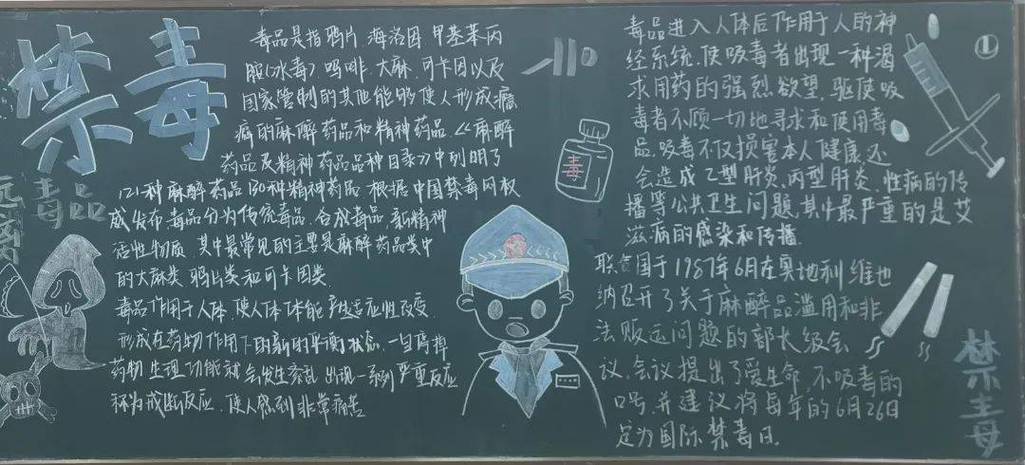 禁毒
远离毒品
毒品是指鸦片 海洛因 甲基苯丙
胺(冰毒) 吗啡 大麻 可卡因以及
国家管制的其他能够使人形成瘾
癖的麻醉药品和精神药品 《麻醉
药品及精神药品品种目录》中列明了
121种麻醉药品130种精神药品 根据中国禁毒网权
威发布 毒品分为传统毒品、合成毒品 新精神
活性物质 其中最常见的主要是麻醉药品类中
的大麻类 鸦片类和可卡因类
毒品作用于人体,使人体体能产生适应性改变
形成在药物作用下的新的平衡状态 一旦停掉
药物 生理功能就会发生紊乱 出现一系列严重反应
称为戒断反应 使人感到非常痛苦
毒
毒品进入人体后作用于人的神
经系统,使吸毒者出现一种渴
求用药的强烈欲望,驱使吸
毒者不顾一切地寻求和使用毒
品.吸毒不仅损害本人健康,还
会造成乙型肝炎,丙型肝炎,性病的传
播等公共卫生问题,其中最严重的是艾
滋病的感染和传播.
联合国于1987年6月在奥地利维也
纳召开了关于麻醉品滥用和非
法贩运问题的部长级会
议.会议提出了爱生命,不吸毒的
口号.并建议将每年的6月26日
定为国际禁毒日.
①
禁毒